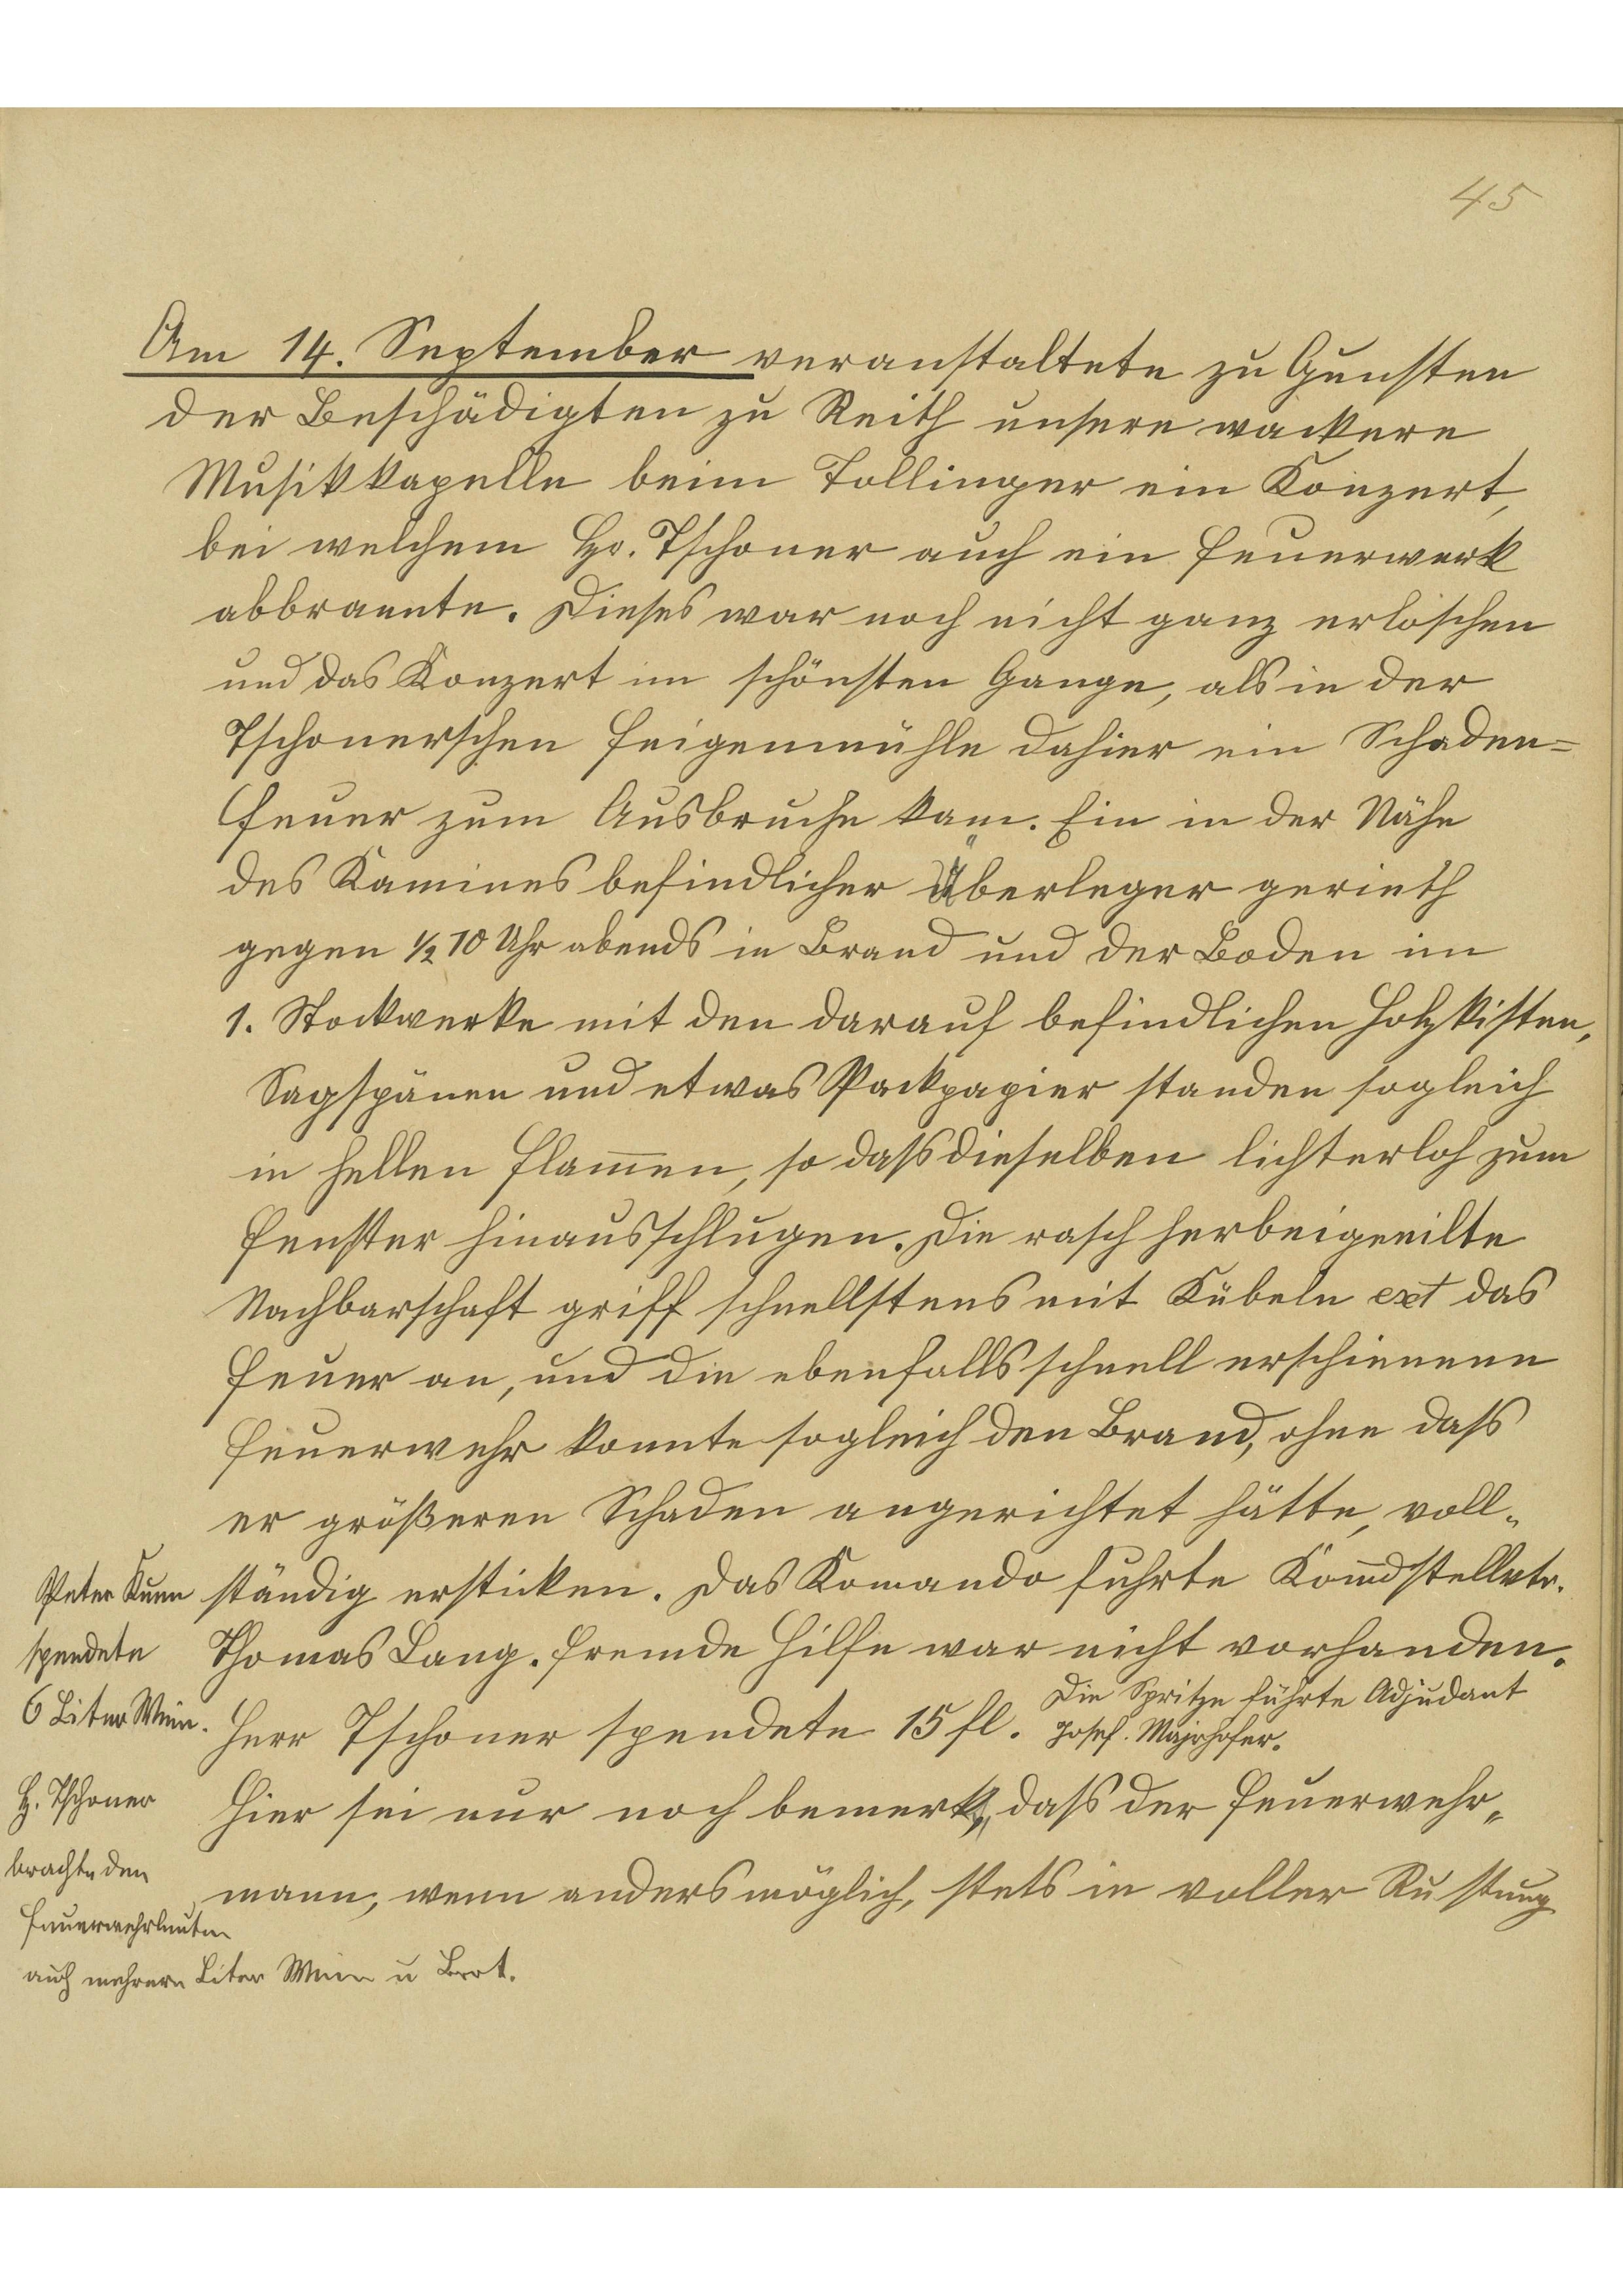 45
Am 14. September veranstaltete zu Gunsten
der Beschädigten zu Reith unsere wackere
Musikkapelle beim Tollinger ein Konzert,
bei welchem Hr. Tschoner auch ein Feuerwerk
abbrannte. Dieses war noch nicht ganz erloschen
und das Konzert im schönsten Gange, als in der
Tschonerschen Feigenmühle dahier ein Schaden=
feuer zum Ausbruche kam. Ein in der Nähe
des Kamines befindlicher Überleger gerieth
gegen ½ 10 Uhr abends in Brand und der Boden im
1. Stockwerke mit den darauf befindlichen Holzkisten,
Sagspänen und etwas Packpapier standen sogleich
in hellen Flam̅en, so dass dieselben lichterloh zum
Fenster hinausschlugen. Die rasch herbeigeeilte
Nachbarschaft griff schnellstens mit Kübeln ext das
Feuer an, und die ebenfalls schnell erschienene
Feuerwehr konnte sogleich den Brand, ohne dass
er größeren Schaden angerichtet hätte, voll-
ständig ersticken. Das Komando fuhrte Kom̅dstellvtr.
Thomas Lang. Fremde Hilfe war nicht vorhanden.
Herr Tschoner spendete 15 fl. Die Spritze führte Adjudant
Josef Majrhofer.
Hier sei nur noch bemerkt, dass der Feuerwehr-
mann, wenn anders möglich, stets in voller Rustung
Peter
spendete
6 Liter Wein.
H. Tschoner
brachte den
Feuerwehrleuten
auch mehrere Liter Wein u Brot.